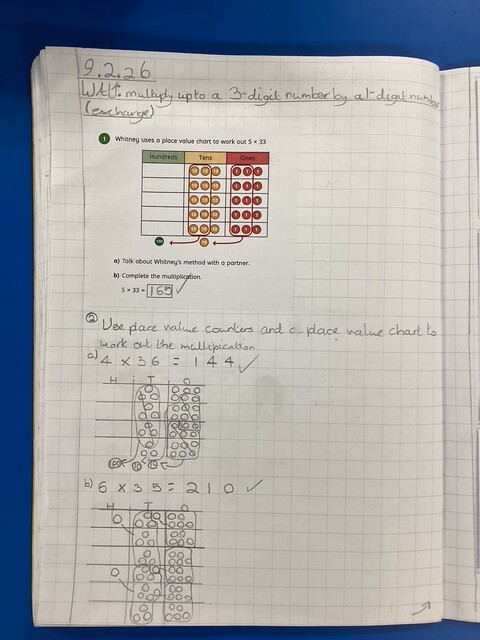 9.2.26
WALT: multiply up to a 3-digit number by a 1-digit number
(exchange)
1 Whitney uses a place value chart to work out 5 × 33
Hundreds Tens Ones
10 10 10 1 1 1
10 10 10 1 1 1
10 10 10 1 1 1
10 10 10 1 1 1
10 10 10 1 1 1
100 10
a) Talk about Whitney's method with a partner.
b) Complete the multiplication.
5 × 33 = 165
② Use place value counters and a place value chart to
work out the multipication
a) 4 × 36 = 144
H T O
100 10 10
b) 6 × 35 = 210
H T O